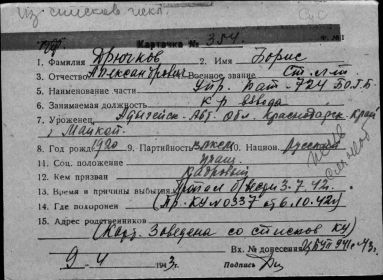 Из списков искл.
Карточка № 354
1. Фамилия Дрючков 2. Имя Борис
3. Отчество Александрович Военное звание Ст. л-т
5. Наименование части Упр. бат-724
6. Занимаемая должность к-р взвода
7. Уроженец Адыгейск. Авт. Обл. Краснодарск. край
г. Майкоп.
8. Год рожд. 1920 9. Партийность влксм 10. Национ. Русский
11. Соц. положение
12. Кем призван Кадровый
13. Время и причины выбытия Пропал б/вести 3.7.42г.
14. Где похоронен (Пр. КУ № 0337 от 6.10.42г)
15. Адрес родственников
(Карт. Заведена со списков КУ)
Вх. № донесения
9 - 4 1943 г. Подпись